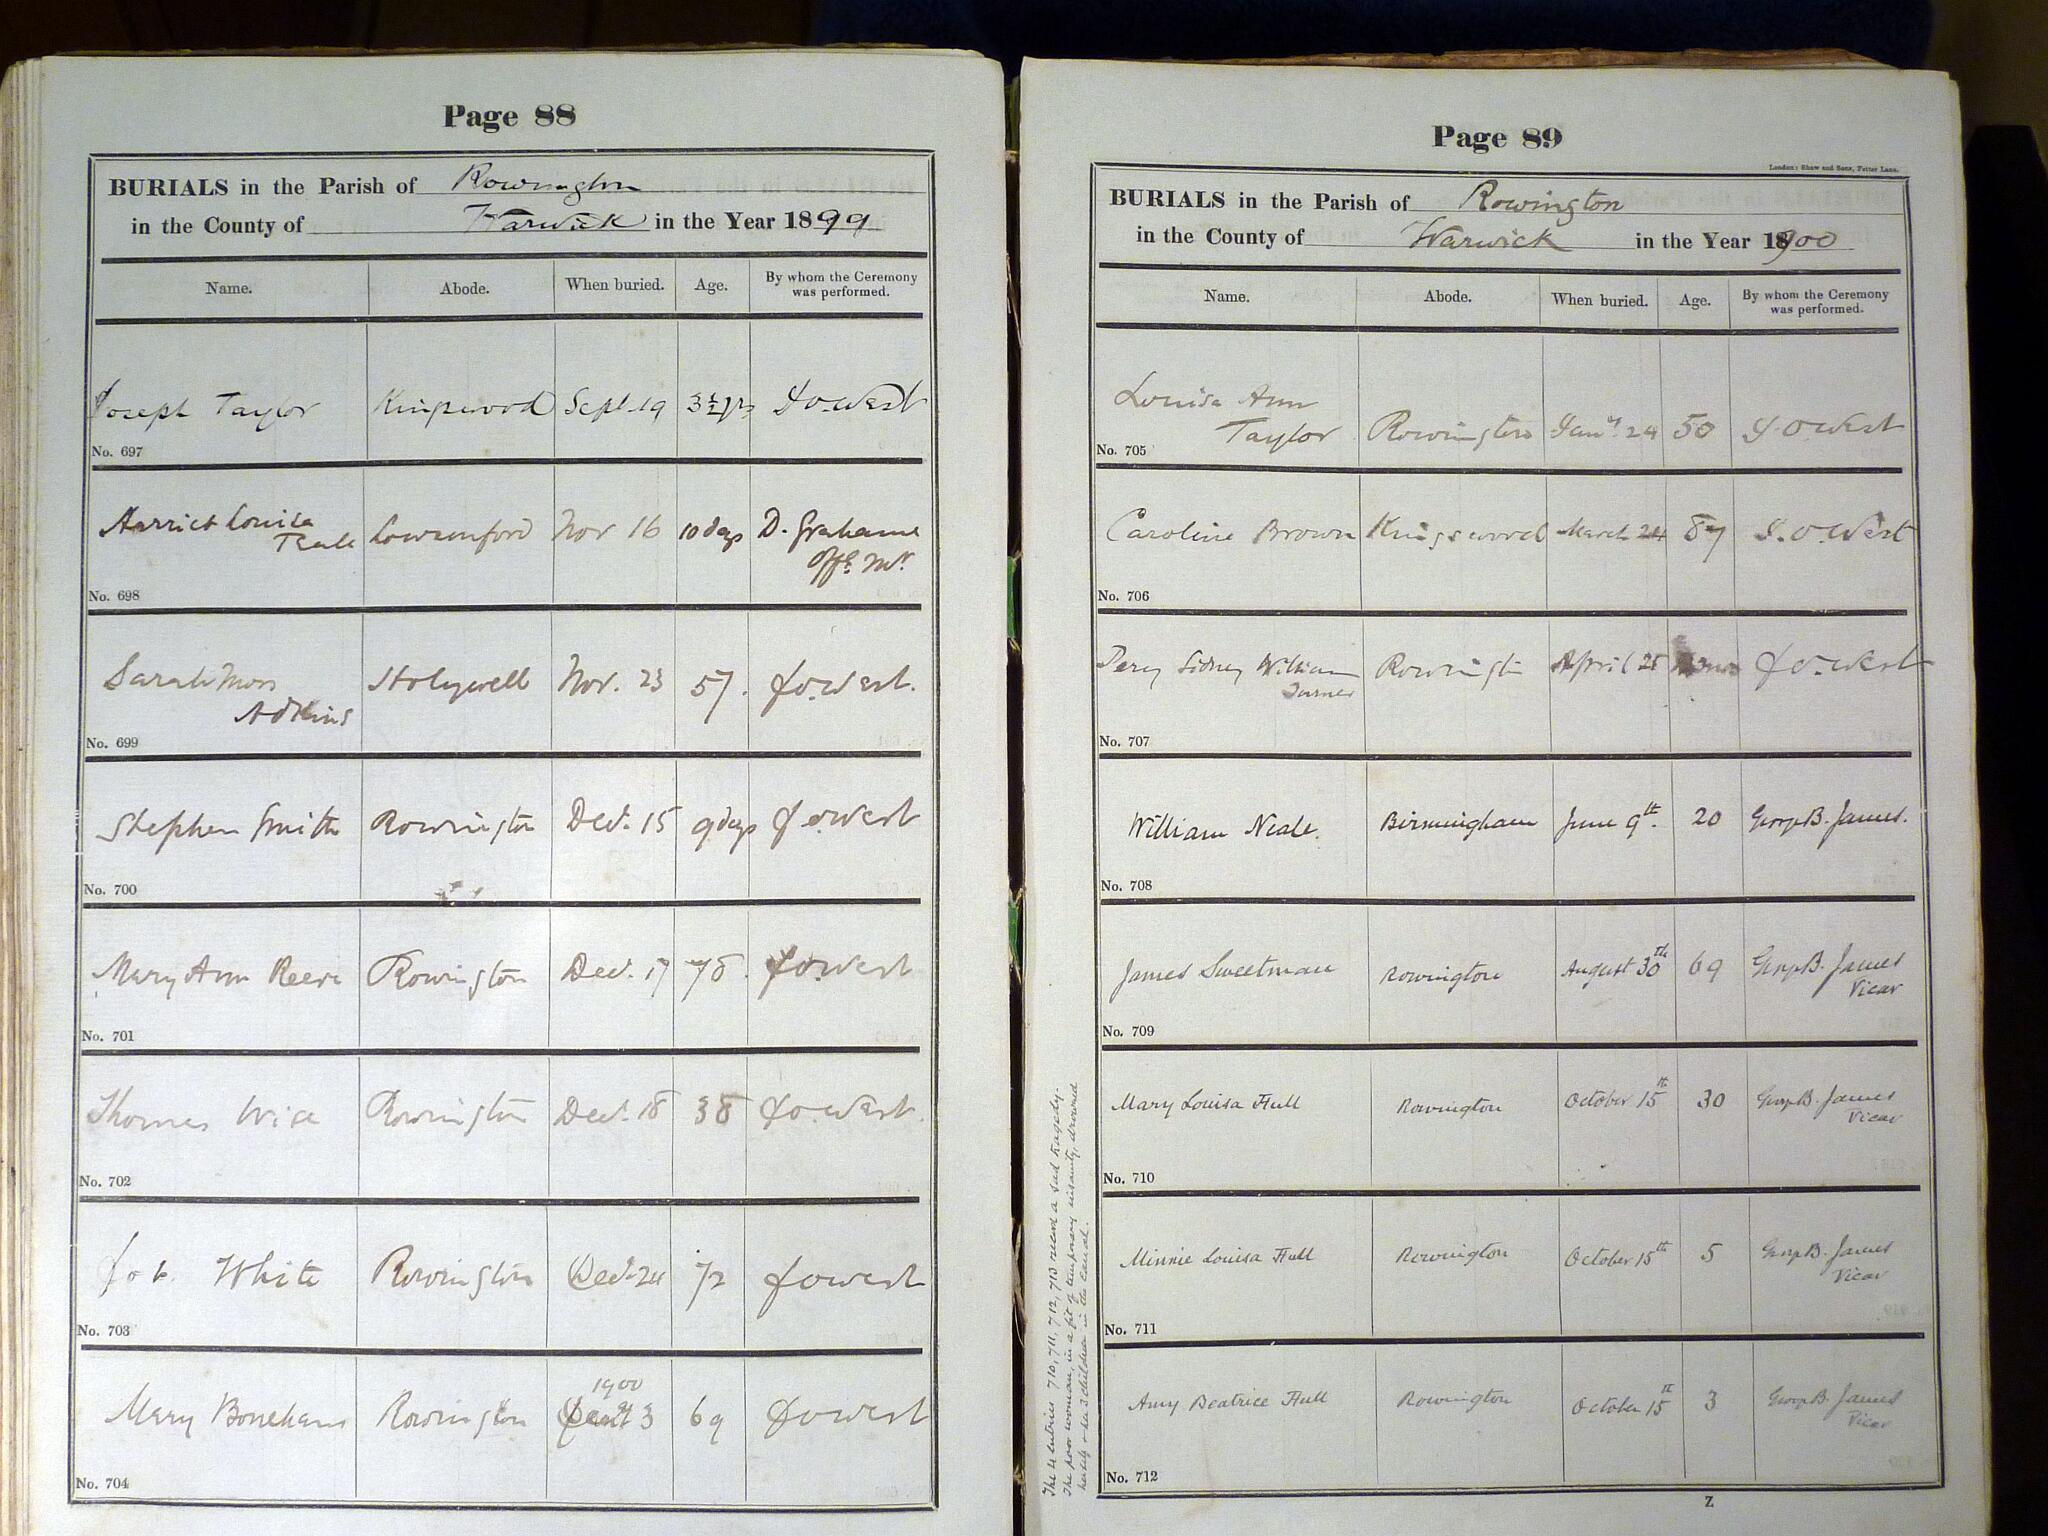 Page 88
BURIALS in the Parish of Rowington
in the County of Warwick in the Year 1899
Name. Abode. When buried. Age. By whom the Ceremony
was performed.
Joseph Taylor Kingswood Sept. 19 3½ yrs West
No. 697
Harriet Louisa
Lowsonford Nov 16 10 days D. Grahame
Offg. Mr.
No. 698
Sarah Moss
Adkins Holywell Nov. 23 57. West.
No. 699
Stephen Smith Rowington Decr. 15 9 days West
No. 700
Mary Ann Reeve Rowington Decr. 17 78. West
No. 701
Thomas Wise Rowington Decr. 18 38 West.
No. 702
Job White Rowington Decr. 24 72 West
No. 703
1900
Mary Rowington 3 69 West
No. 704
Page 89
London: Shaw and Sons, Fetter Lane.
BURIALS in the Parish of Rowington
in the County of Warwick in the Year 1900
Name. Abode. When buried. Age. By whom the Ceremony
was performed.
Louisa Ann
Taylor Rowington Jany. 24 50 West
No. 705
Caroline Brown Kingswood March 24 87 West
No. 706
Percy Sidney William
Turner Rowington April 28 West
No. 707
William Neale. Birmingham June 9th. 20 George B. James.
No. 708
James Sweetman Rowington August 30th 69 George B. James
Vicar
No. 709
Mary Louisa Hull Rowington October 15th 30 George B. James
Vicar
No. 710
Minnie Louisa Hull Rowington October 15th 5 George B. James
Vicar
No. 711
Amy Beatrice Hull Rowington October 15th 3 George B. James
Vicar
No. 712
Z
The 4 entries 710, 711, 712, 713 record a sad tragedy.
The poor woman, in a fit of temporary insanity, drowned
herself & her 3 children in the Canal.